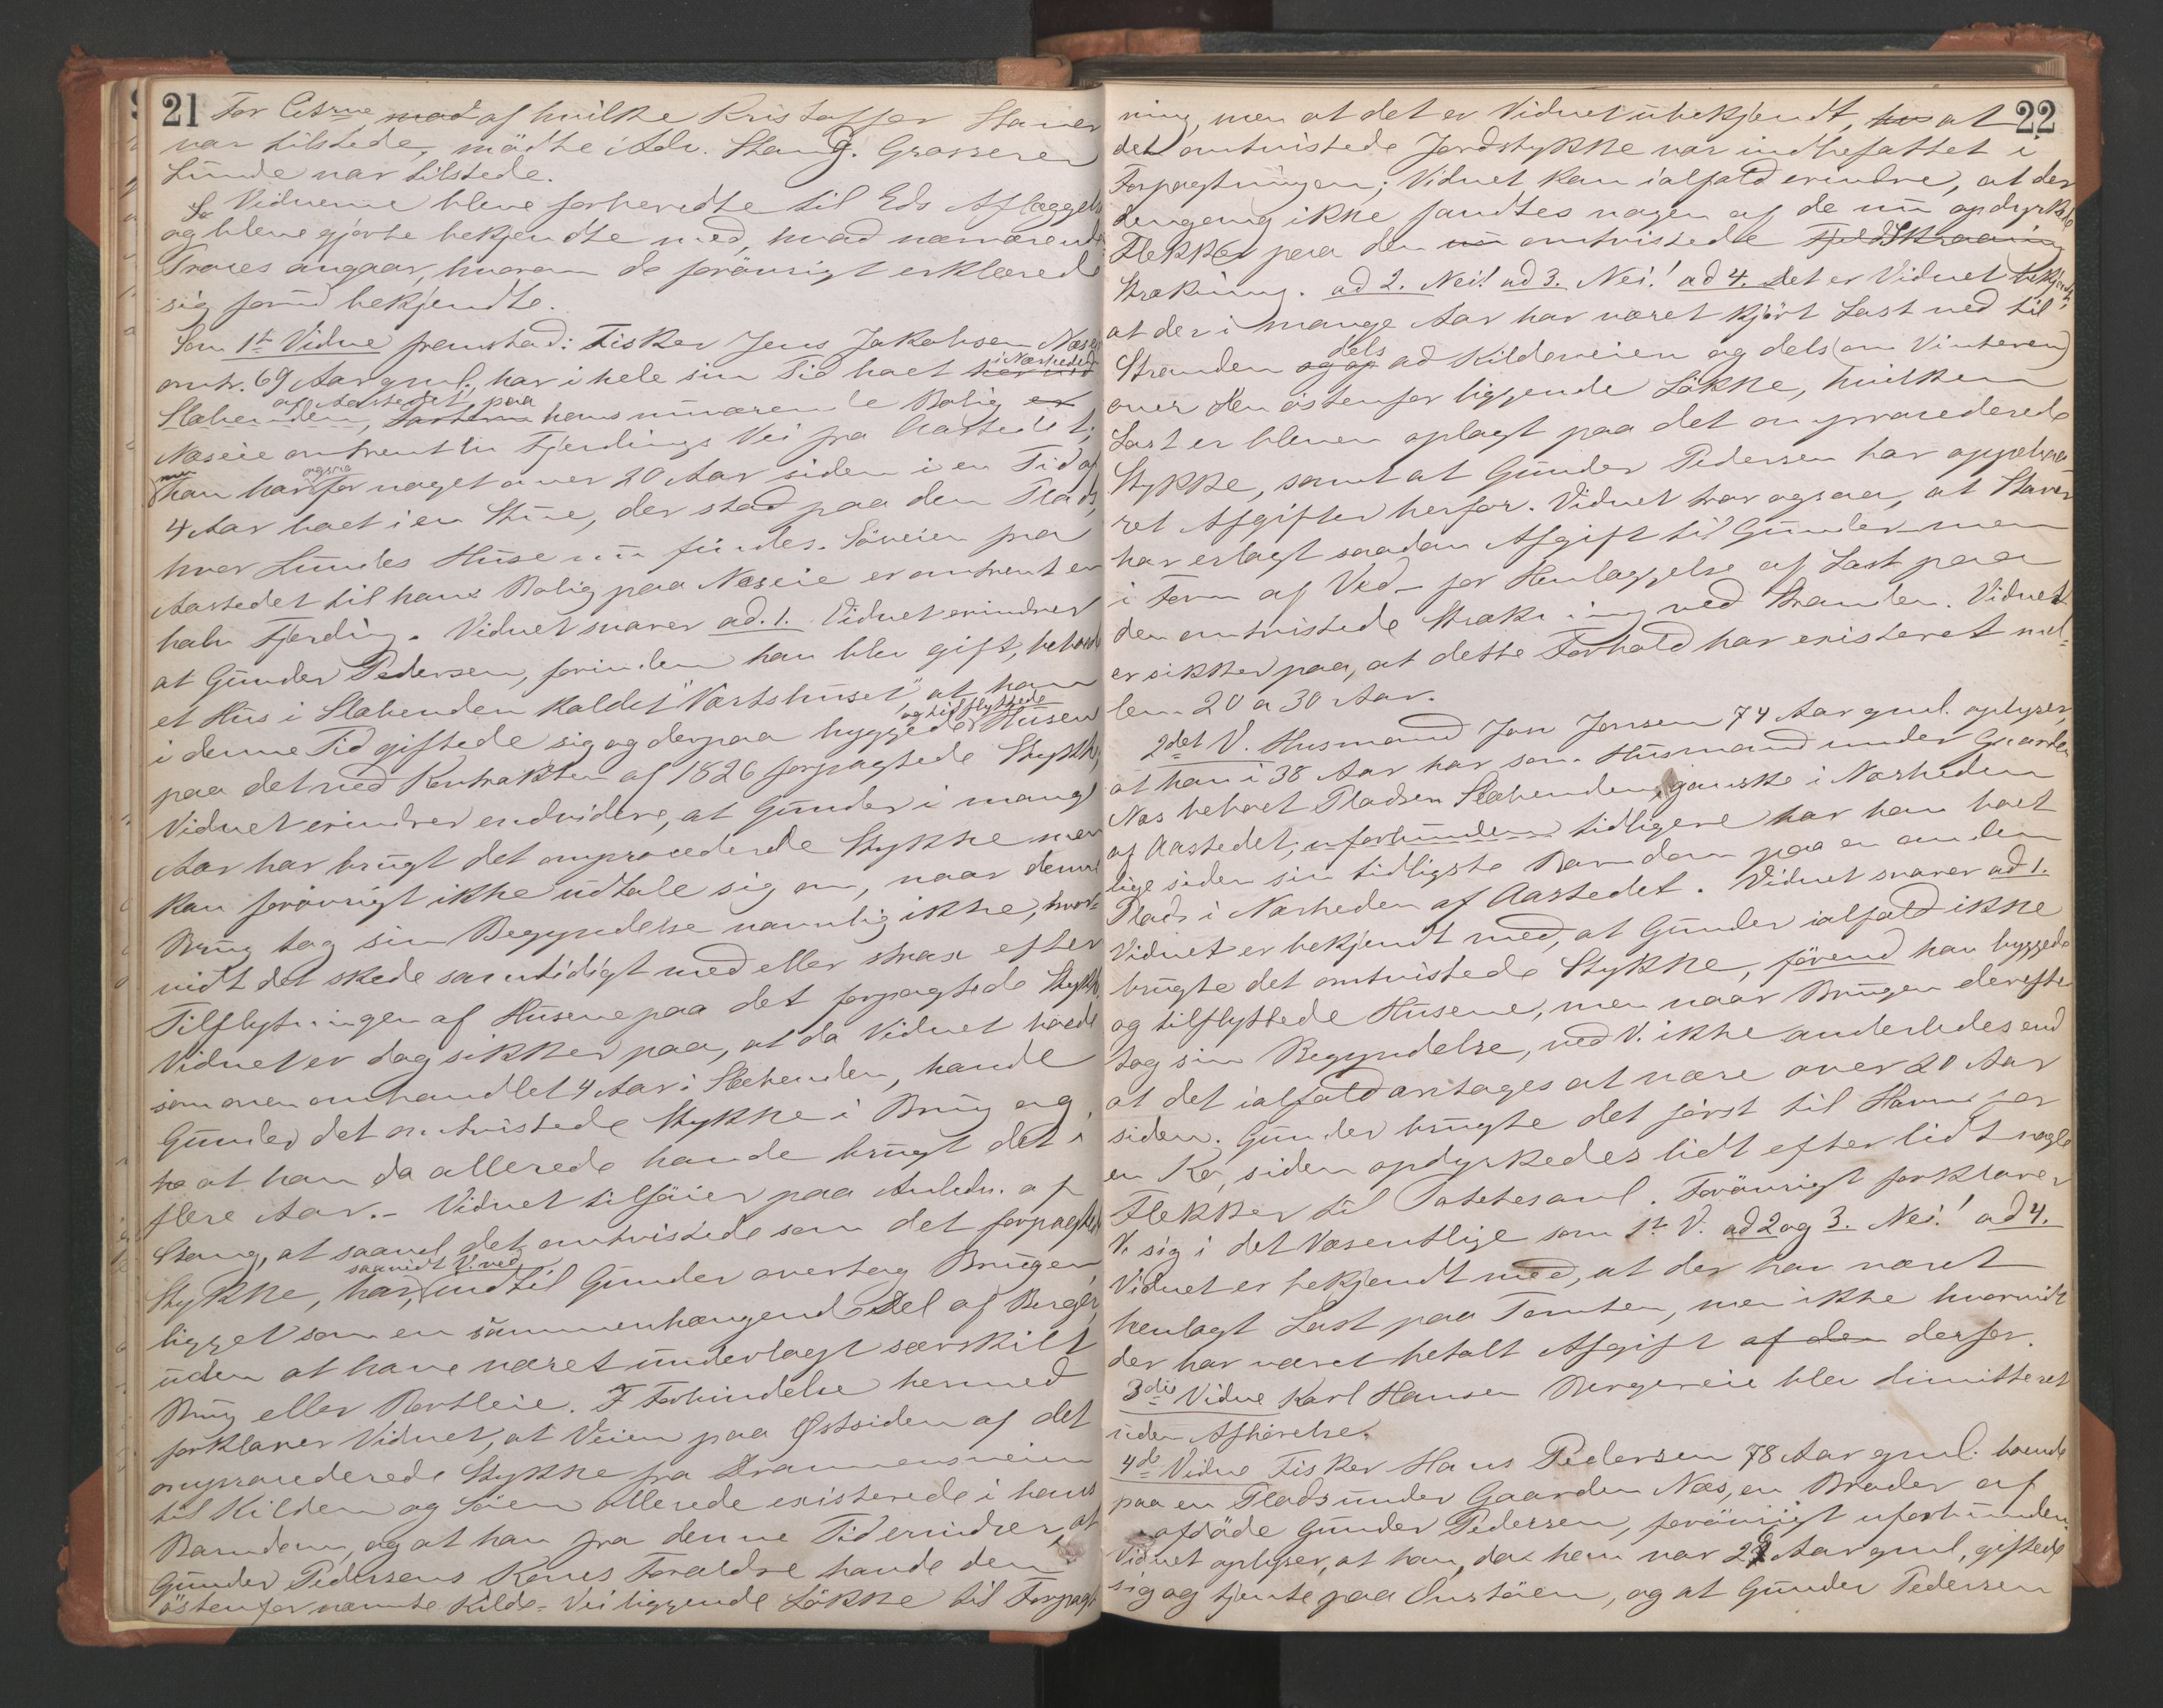 21
For Citrne af hvilke Kristoffer Staver
var tilstede, mödte Adv. Stang. Grosserer
Lunde var tilstede.
Vidnerne bleve forberedte til Eds Aflæggelse
og bleve gjorte bekjendte med, hvad nærværende
Proces angaar, hvorom de forövrigt erklærede
sig forud bekjendte.
Som 1ste Vidne fremstod: Fisker Jens Jakobsen Næseie
omtr. 69 Aar gml., har i hele sin Tid boet i Nærheden
af Aastedet, paa
Slæbenden, hans nuværende Bolig
Næseie omtrent en Fjerdings Vei fra Aastedet;
men han har ogsaa for noget over 20 Aar siden i en Tid af
4 Aar boet i en Stue, der stod paa den Plads,
hvor Lundes Huse nu findes. Söveien fra
Aastedet til hans Bolig paa Næseie er omtrent en
halv Fjerding. Vidnet svarer ad. 1. Vidnet erindrer
at Gunder Pedersen, forinden han blev gift, beboede
et Hus i Slæbenden kaldet "Vertshuset", at han
i denne Tid giftede sig og derpaa byggede og tilflyttede Husene
paa det ved Kontrakten af 1826 forpagtede Stykke,
Vidnet erindrer endvidere, at Gunder i mange
Aar har brugt det omprocederede Stykke men
kan forövrigt ikke udtale sig om, naar denne
Brug tog sin Begyndelse navnlig ikke, hvor-
vidt det skede samtidigt med eller strax efter
Tilflytningen af Husene paa det forpagtede Stykke.
Vidnet er dog sikker paa, at da Vidnet boede
som oven omhandlet 4 Aar i Slæbenden, havde
Gunder det omtvistede Stykke i Brug og
at han da allerede havde brugt det i
flere Aar. – Vidnet tilföier paa Anledn. af
Stang, at saavel det omtvistede som det forpagtede
Stykke, har, saavidt V. ved, indtil Gunder overtog Brugen,
ligget som en sammenhængende Del af Berger,
uden at have været underlagt særskilt
Brug eller Bortleie. I Forbindelse hermed
forklarer Vidnet, at Veien paa Østsiden af det
omprocederede Stykke fra Drammensveien
til Kilden og Söen allerede existerede i hans
Barndom, og at han fra denne Tid erindrer, at
Gunder Pedersens Kones Forældre havde den
östenfor nævnte Kilde-Vei liggende Lökke til Forpagt
22
ning, men at det er Vidnet ubekjendt, at
det omtvistede Jordstykke var indbefattet i
Forpagtningen; Vidnet kan ialfald erindre, at der
dengang ikke fandtes nogen af de nu opdyrkede
Flekker paa den omtvistede Fjeldskraaning
Strækning. ad 2. Nei! ad 3. Nei! ad 4. Det er Vidnet bekjendt,
at der i mange Aar har været kjört Last ned til
Stranden dels ad Kildeveien og dels (om Vinteren)
over den östenfor liggende Lökke, hvilken
Last er bleven oplagt paa det omprocederede
Stykke, samt at Gunder Pedersen har oppebaa-
ret Afgifter herfor. Vidnet tror ogsaa, at Staver
har erlagt saadan Afgift til Gunder men
i Form af Ved – for Henlæggelse af Last paa
den omtvistede Strækning ved Stranden. Vidnet
er sikker paa, at dette Forhold har existeret mel-
lem 20 a 30 Aar.
2det V. Husmand Jon Jonsen 74 Aar gml. oplyser,
at han i 38 Aar har som Husmand under Gaarden
Næs beboet Pladsen Slæbenden, ganske i Nærheden
af Aastedet, uforbunden tidligere har han boet
lige siden sin tidligste Barndom paa en anden
Plads i Nærheden af Aastedet. Vidnet svarer ad 1.
Vidnet er bekjendt med, at Gunder ialfald ikke
brugte det omtvistede Stykke, förend han byggede
og tilflyttede Husene, men naar Brugen derefter
tog sin Begyndelse, ved V. ikke anderledes end
at det ialfald antages at være over 20 Aar
siden. Gunder brugte det först til Havn for
en Ko, siden opdyrkedes lidt efter lidt nogle
Flekker til Potetesavl. Forövrigt forklarer
V. sig i det Væsentlige som 1ste V. ad 2 og 3. Nei! ad 4.
Vidnet er bekjendt med, at der har været
henlagt Last paa Tomten, men ikke hvorvidt
der har været betalt Afgift af den derfor.
3die Vidne Karl Hansen Bergereie blev dimitteret
uden Afhörelse.
4de Vidne Fisker Hans Pedersen 78 Aar gml. boende
paa en Plads under Gaarden Næs, en Broder af
afdöde Gunder Pedersen, forövrigt uforbunden.
Vidnet oplyser, at han, da han var 2 Aar gml, giftede
sig og tjente paa Ostöen, og at Gunder Pedersen